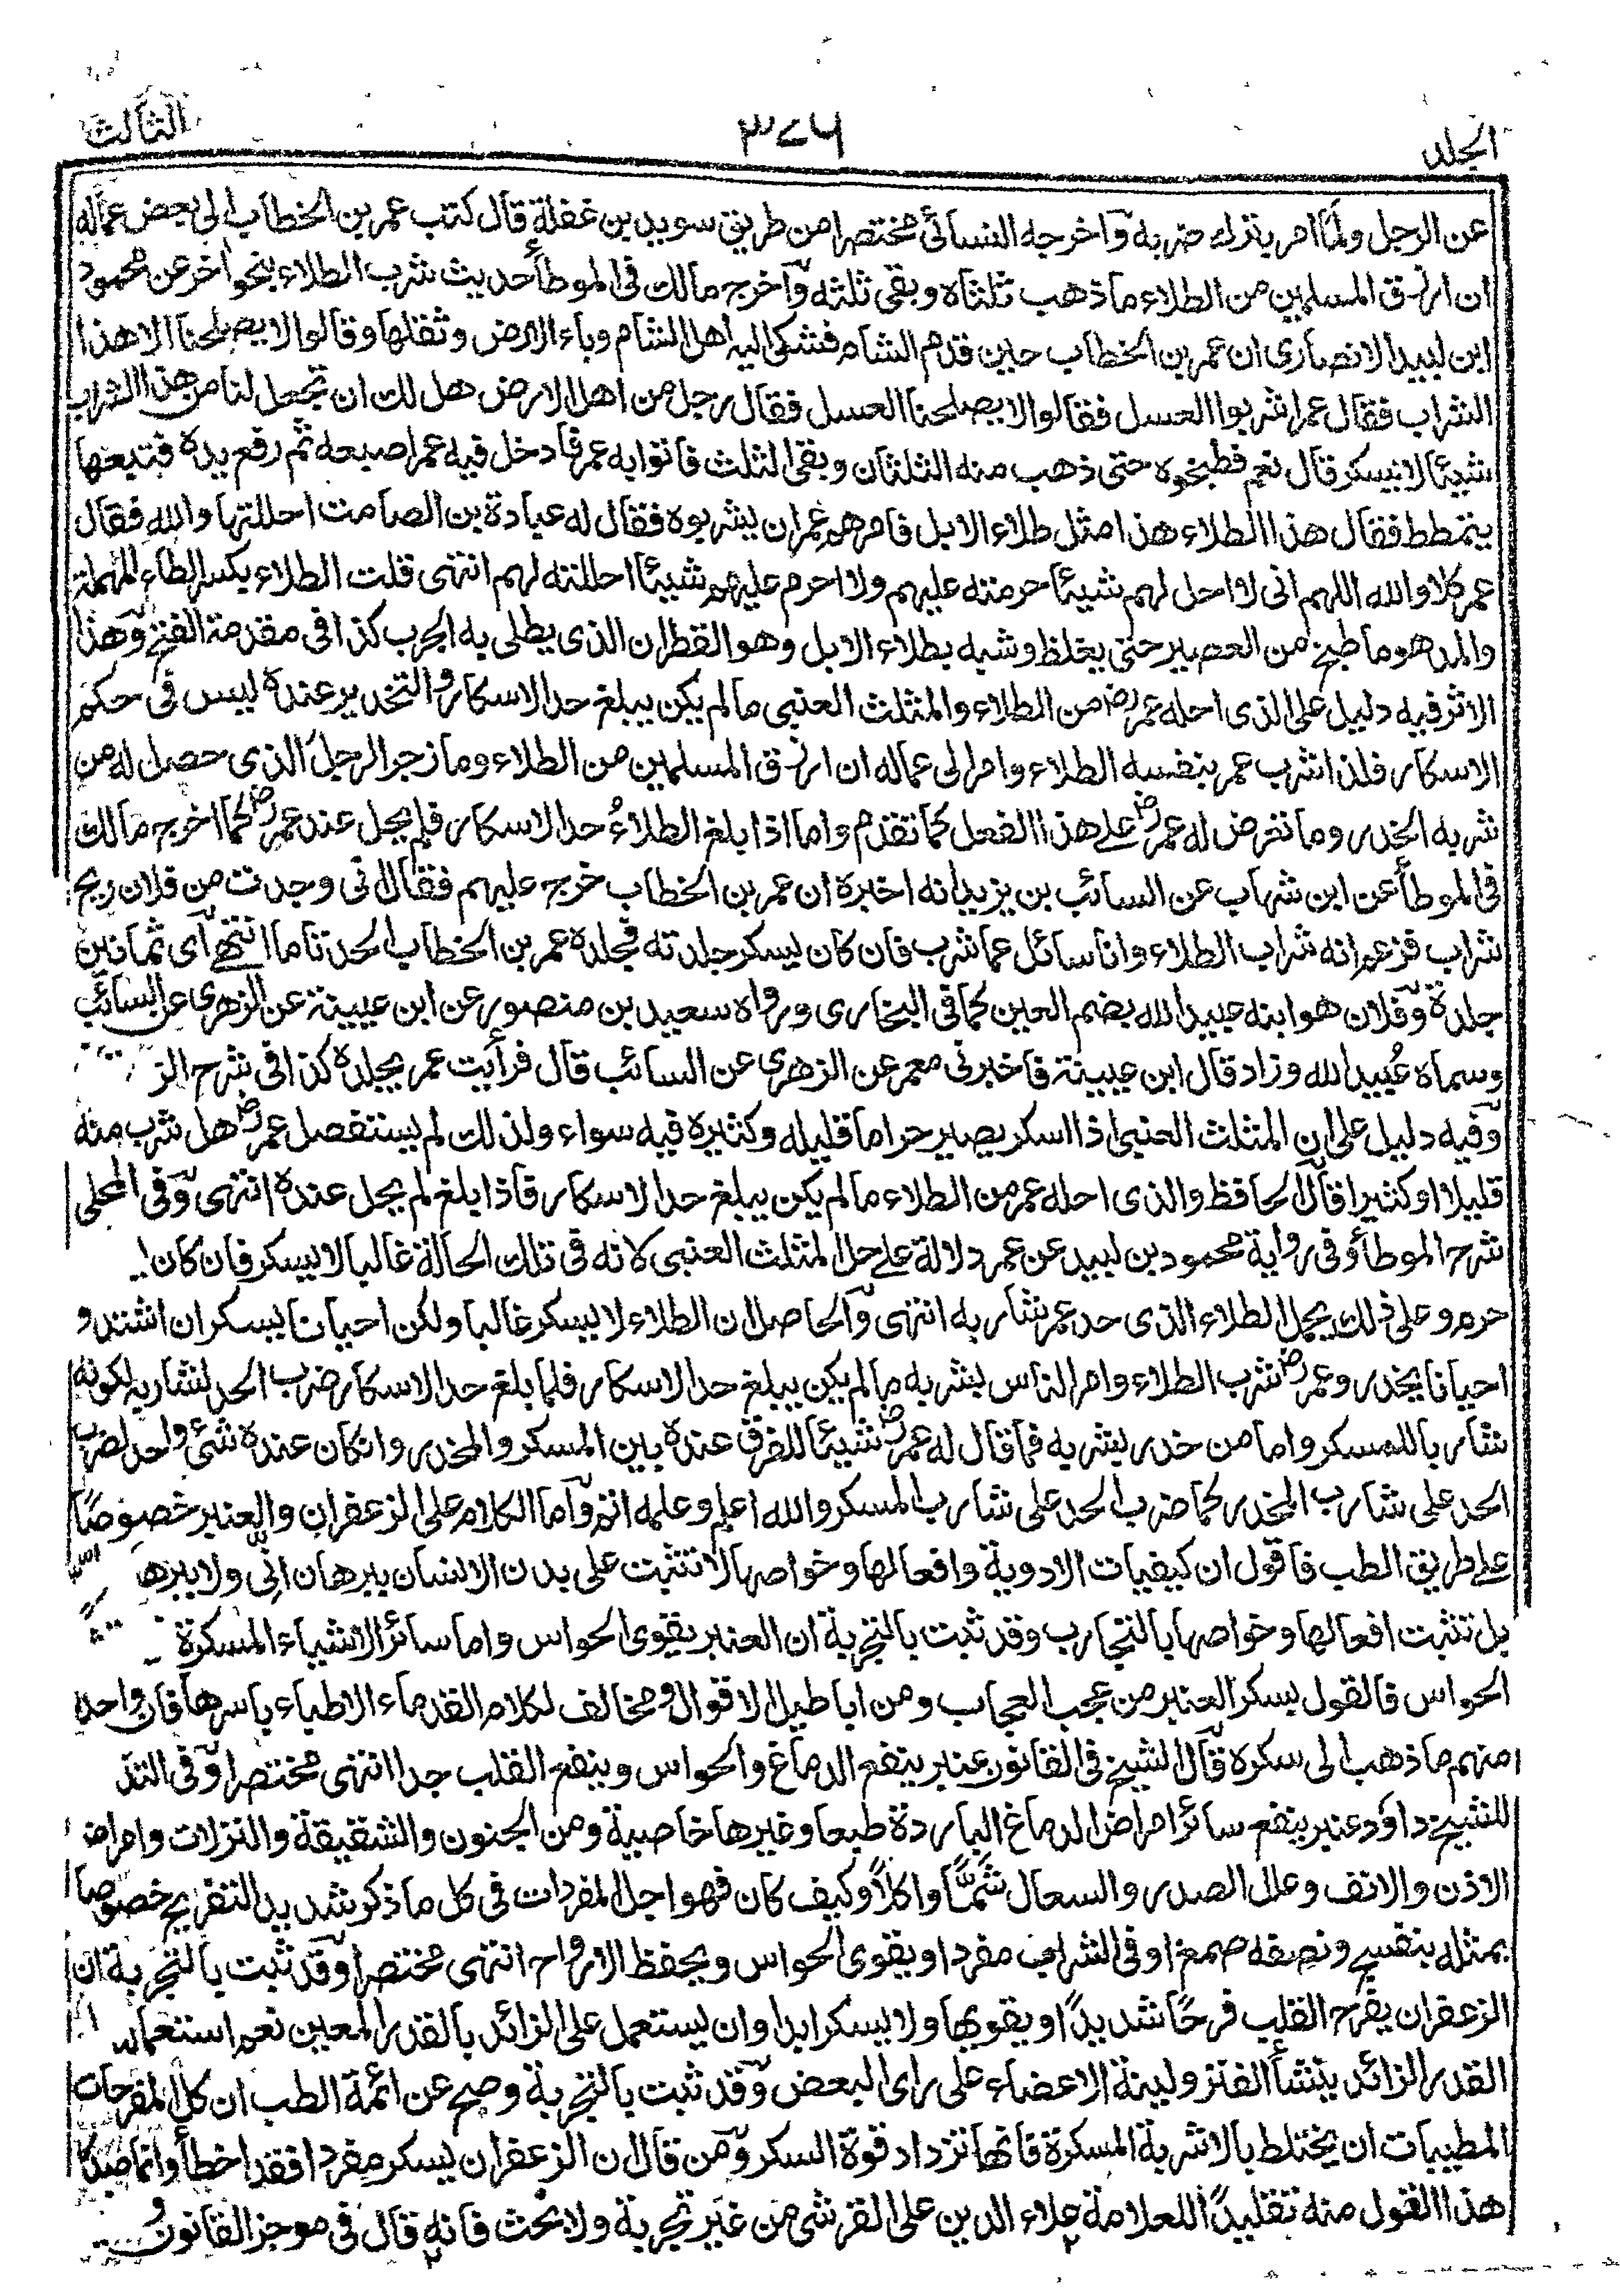 الجلد
٣٧٦
الثالث
عن الرجل ولما امر بترك ضربه وآخرجه النسائى مختصرا من طريق سويد بن غفلة قال كتب عمر بن الخطاب الى بعض عماله
ان ارزق المسلمين من الطلاء ما ذهب ثلثاه وبقى ثلثه وآخرج مالك فى الموطأ حديث شرب الطلاء بنحو اخر عن محمود
ابن لبيد الانصارى ان عمر بن الخطاب حين قدم الشام فشكى اليه اهل الشام وباء الارض وثقلها وقالوا لا يصلحنا الا هذا
الشراب فقال عمر اشربوا العسل فقالوا لا يصلحنا العسل فقال رجل من اهل الارض هل لك ان تجعل لنا من هذا الشراب
شيئا لا يسكر قال نعم فطبخوه حتى ذهب منه الثلثان وبقى الثلث فاتوا به عمر فادخل فيه عمر اصبعه ثم رفع يده فتبعها
يتمطط فقال هذا الطلاء هذا مثل طلاء الابل فامرهم عمر ان يشربوه فقال له عبادة بن الصامت احللتها والله فقال
عمر كلا والله اللهم انى لا احل لهم شيئا حرمته عليهم ولا احرم عليهم شيئا احللته لهم انتهى قلت الطلاء بكسر الطاء المهملة
والمد هو ما طبخ من العصير حتى يغلظ وشبه بطلاء الابل وهو القطران الذى يطلى به الجرب كذا فى مقدمة الفتح وهذا
الاثر فيه دليل على الذى احله عمر رض من الطلاء والمثلث العنبى ما لم يكن يبلغ حد الاسكار والتخدير عنده ليس فى حكم
الاسكار فلذا شرب عمر بنفسه الطلاء وامر الى عماله ان ارزق المسلمين من الطلاء وما زجر الرجل الذى حصل له من
شربه الخدر وما تعرض له عمر رض على هذا الفعل كما تقدم واما اذا بلغ الطلاءُ حد الاسكار فلم يحل عند عمر رض كما اخرج مالك
فى الموطأ عن ابن شهاب عن السائب بن يزيد انه اخبره ان عمر بن الخطاب خرج عليهم فقال انى وجدت من فلان ريح
شراب فزعم انه شراب الطلاء وانا سائل عما شرب فان كان يسكر جلدته فجلده عمر بن الخطاب الحد تاما انتهى آى ثمانين
جلدة وفلان هو ابنه عبيد الله بضم العين كما فى البخارى ورواه سعيد بن منصور عن ابن عيينة عن الزهرى عن السائب
وسماه عُبيد الله وزاد قال ابن عيينة فاخبرنى معمر عن الزهرى عن السائب قال فرأيت عمر يجلده كذا فى شرح الز
وفيه دليل على ان المثلث العنبى اذا اسكر يصير حراما قليله وكثيره فيه سواء ولذلك لم يستفصل عمر رض هل شرب منه
قليلا او كثيرا قال الحافظ والذى احله عمر من الطلاء ما لم يكن يبلغ حد الاسكار فاذا بلغ لم يحل عنده انتهى وفى المحلى
شرح الموطأ وفى رواية محمود بن لبيد عن عمر دلالة على حل المثلث العنبى لانه فى تلك الحالة غالبا لا يسكر فان كان
حرم وعلى ذلك يحمل الطلاء الذى حد عمر شاربه انتهى وآلحاصل ان الطلاء لا يسكر غالبا ولكن احيانا يسكر ان اشتد و
احيانا يخدر وعمر رض شرب الطلاء وامر الناس بشربه ما لم يكن يبلغ حد الاسكار فلما بلغ حد الاسكار ضرب الحد لشاربه لكونه
شاربا للمسكر واما من خدر بشربه فما قال له عمر رض شيئا للفرق عنده بين المسكر والمخدر وانكان عنده شئ واحد لضرب
الحد على شارب المخدر كما ضرب الحد على شارب المسكر والله اعلم وعلمه اتم وآما الكلام على الزعفران والعنبر خصوصًا
على طريق الطب فاقول ان كيفيات الادوية وافعالها وخواصها لا تثبت على بدن الانسان ببرهان انّى ولا ببرها
بل تثبت افعالها وخواصها بالتجارب وقد ثبت بالتجربة ان العنبر يقوى الحواس واما سائر الاشياء المسكرة
الحواس فالقول بسكر العنبر من عجب العجاب ومن اباطيل الاقوال ومخالف لكلام القدماء الاطباء باسرها فان واحدا
منهم ما ذهب الى سكره قال الشيخ فى القانون عنبر ينفع الدماغ والحواس وينفع القلب جدا انتهى مختصرا وفى التذ
للشيخ داود عنبر ينفع سائر امراض الدماغ الباردة طبعا وغيرها خاصية ومن الجنون والشقيقة والنزلات وامراض
الاذن والانف وعلل الصدر والسعال شمًّا واكلاً وكيف كان فهو اجل المفردات فى كل ما ذكر شديد التفريح خصوصا
بمثله بنفسج ونصفه صمغ او فى الشراب مفردا ويقوى الحواس ويحفظ الارواح انتهى مختصرا وقد ثبت بالتجربة ان
الزعفران يفرح القلب فرحًا شديدًا ويقويها ولا يسكر ابدا وان يستعمل على الزائد بالقدر المعين نعم استعماله
القدر الزائد ينشأ الفتر ولينة الاعضاء على راى البعض وقد ثبت بالتجربة وصح عن ائمة الطب ان كل المفرحات
المطيبات ان يختلط بالاشربة المسكرة فانها تزداد قوة السكر ومن قال ان الزعفران يسكر مفردا فقد اخطأ وانما
هذا القول منه تقليدًا للعلامة علاء الدين على القرشى من غير تجربة ولا بحث فانه قال فى موجز القانون